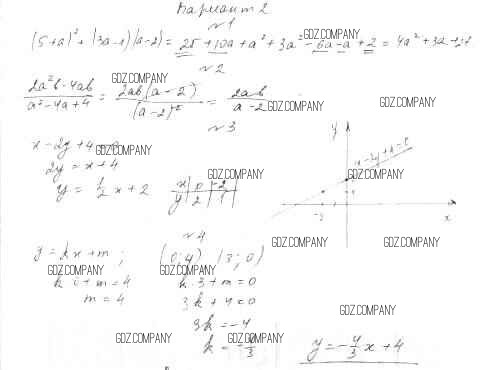 Вариант 2
№1
(5+a)² + (3a-1)(a-2) = 25 + 10a + a² + 3a² - 6a - a + 2 = 4a² + 3a + 27
№2
2a²b-4ab / a²-4a+4 = 2ab(a-2) / (a-2)² = 2ab / a-2
№3
x - 2y + 4 = 0
2y = x + 4
y = 1/2 x + 2
x | 0 | -2
y | 2 | 1
y
x - 2y + 4 = 0
x
№4
y = kx + m; (0; 4) (3; 0)
k·0 + m = 4 k·3 + m = 0
m = 4 3k + 4 = 0
3k = -4
k = -4/3
y = -4/3 x + 4
GDZ.COMPANY
GDZ.COMPANY
GDZ.COMPANY
GDZ.COMPANY
GDZ.COMPANY
GDZ.COMPANY
GDZ.COMPANY
GDZ.COMPANY
GDZ.COMPANY
GDZ.COMPANY
GDZ.COMPANY
GDZ.COMPANY
GDZ.COMPANY
GDZ.COMPANY